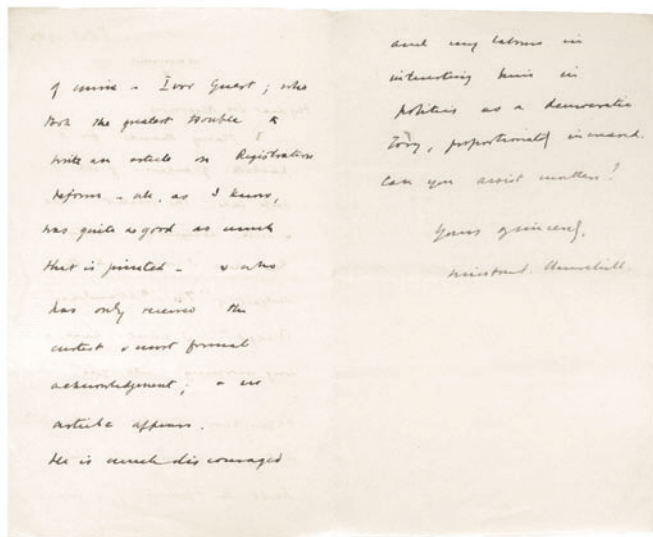 of mine - Ivor Guest; who
took the greatest trouble to
write an article on Registration
Reform - wh, as I know,
was quite as good as much
that is printed - & who
has only received the
curtest & most formal
acknowledgement; & no
article appears.
He is much discouraged
and my labours in
interesting him in
politics as a democratic
Tory, proportionately increased.
Can you assist matters?
Yours sincerely,
Winston S. Churchill